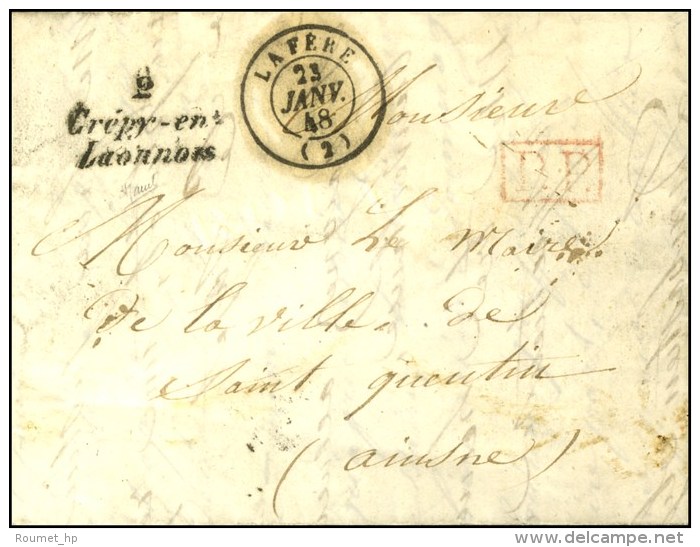 2
Crépy-en-
Laonnois
LA FÈRE
23
JANV.
48
(2)
Monsieur
P.P.
Monsieur Le Maire
De la ville de
Saint quentin
(aisne)
Roumet_hp
www.delcampe.net